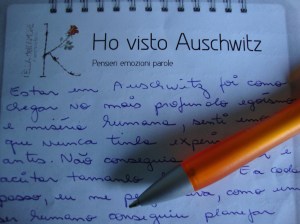 Ho visto Auschwitz
Pensieri emozioni parole
Estar em Auschwitz foi como
chegar no mais profundo egoismo
e miséria humana, senti uma
que nunca tinha
antes. Não conseguia
tamanho
passo, eu me como um
ser humano conseguiu planejar